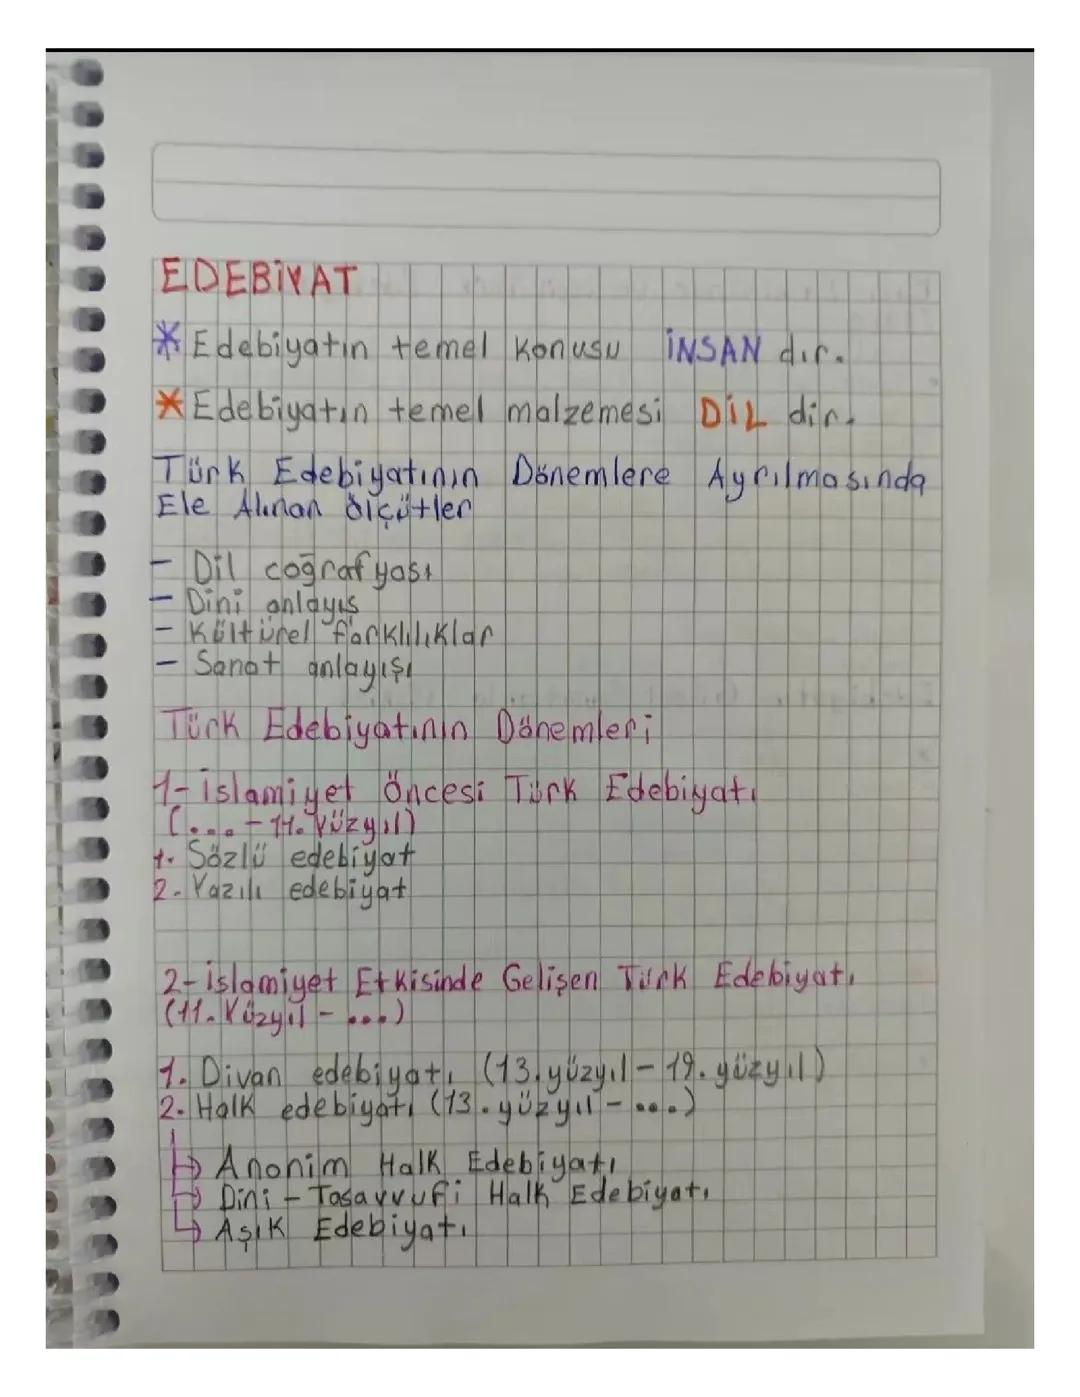 EDEBİYAT
* Edebiyatın temel konusu İNSAN dır.
* Edebiyatın temel malzemesi DİL dir.
Türk Edebiyatının Dönemlere Ayrılmasında
Ele Alınan ölçütler
- Dil coğrafyası
- Dini anlayış
- Kültürel farklılıklar
- Sanat anlayışı
Türk Edebiyatının Dönemleri
1- İslamiyet Öncesi Türk Edebiyatı
(... - 11. Yüzyıl)
1. Sözlü edebiyat
2. Yazılı edebiyat
2- İslamiyet Etkisinde Gelişen Türk Edebiyatı
(11. Yüzyıl - ...)
1. Divan edebiyatı (13. yüzyıl - 19. yüzyıl)
2. Halk edebiyatı (13. yüzyıl - ...)
↳ Anonim Halk Edebiyatı
↳ Dini - Tasavvufi Halk Edebiyatı
↳ Aşık Edebiyatı